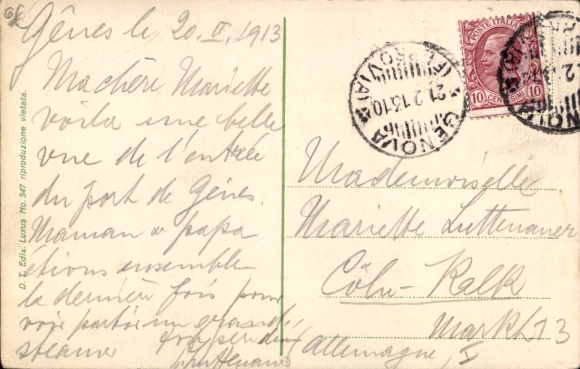 Gênes le 20. II. 1913
Ma chère Mariette
voilà une belle
vue de l'entrée
du port de Gênes.
Maman & papa
étions ensemble
la dernière fois pour
voir partir un grand
steamer
Luttenauer
D. T. Ediz. Luxus No. 347 riproduzione vietata.
POSTE ITALIANE
10 CENTESIMI 10
GENOVA
(FERROVIA)
21.2.13.10
Mademoiselle
Mariette Luttenauer
Cöln-Kalk
Markt 13
(allemagne)